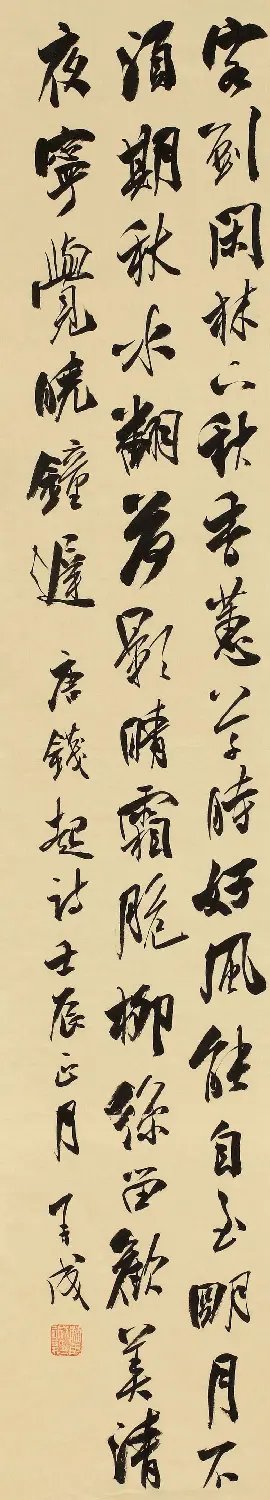 客到閑林下秋香蕙草時好風能自至明月不
須期秋水翻荷影晴霜脆柳絲留歡美清
夜寧覺曉鐘遲 唐錢起詩壬辰正月